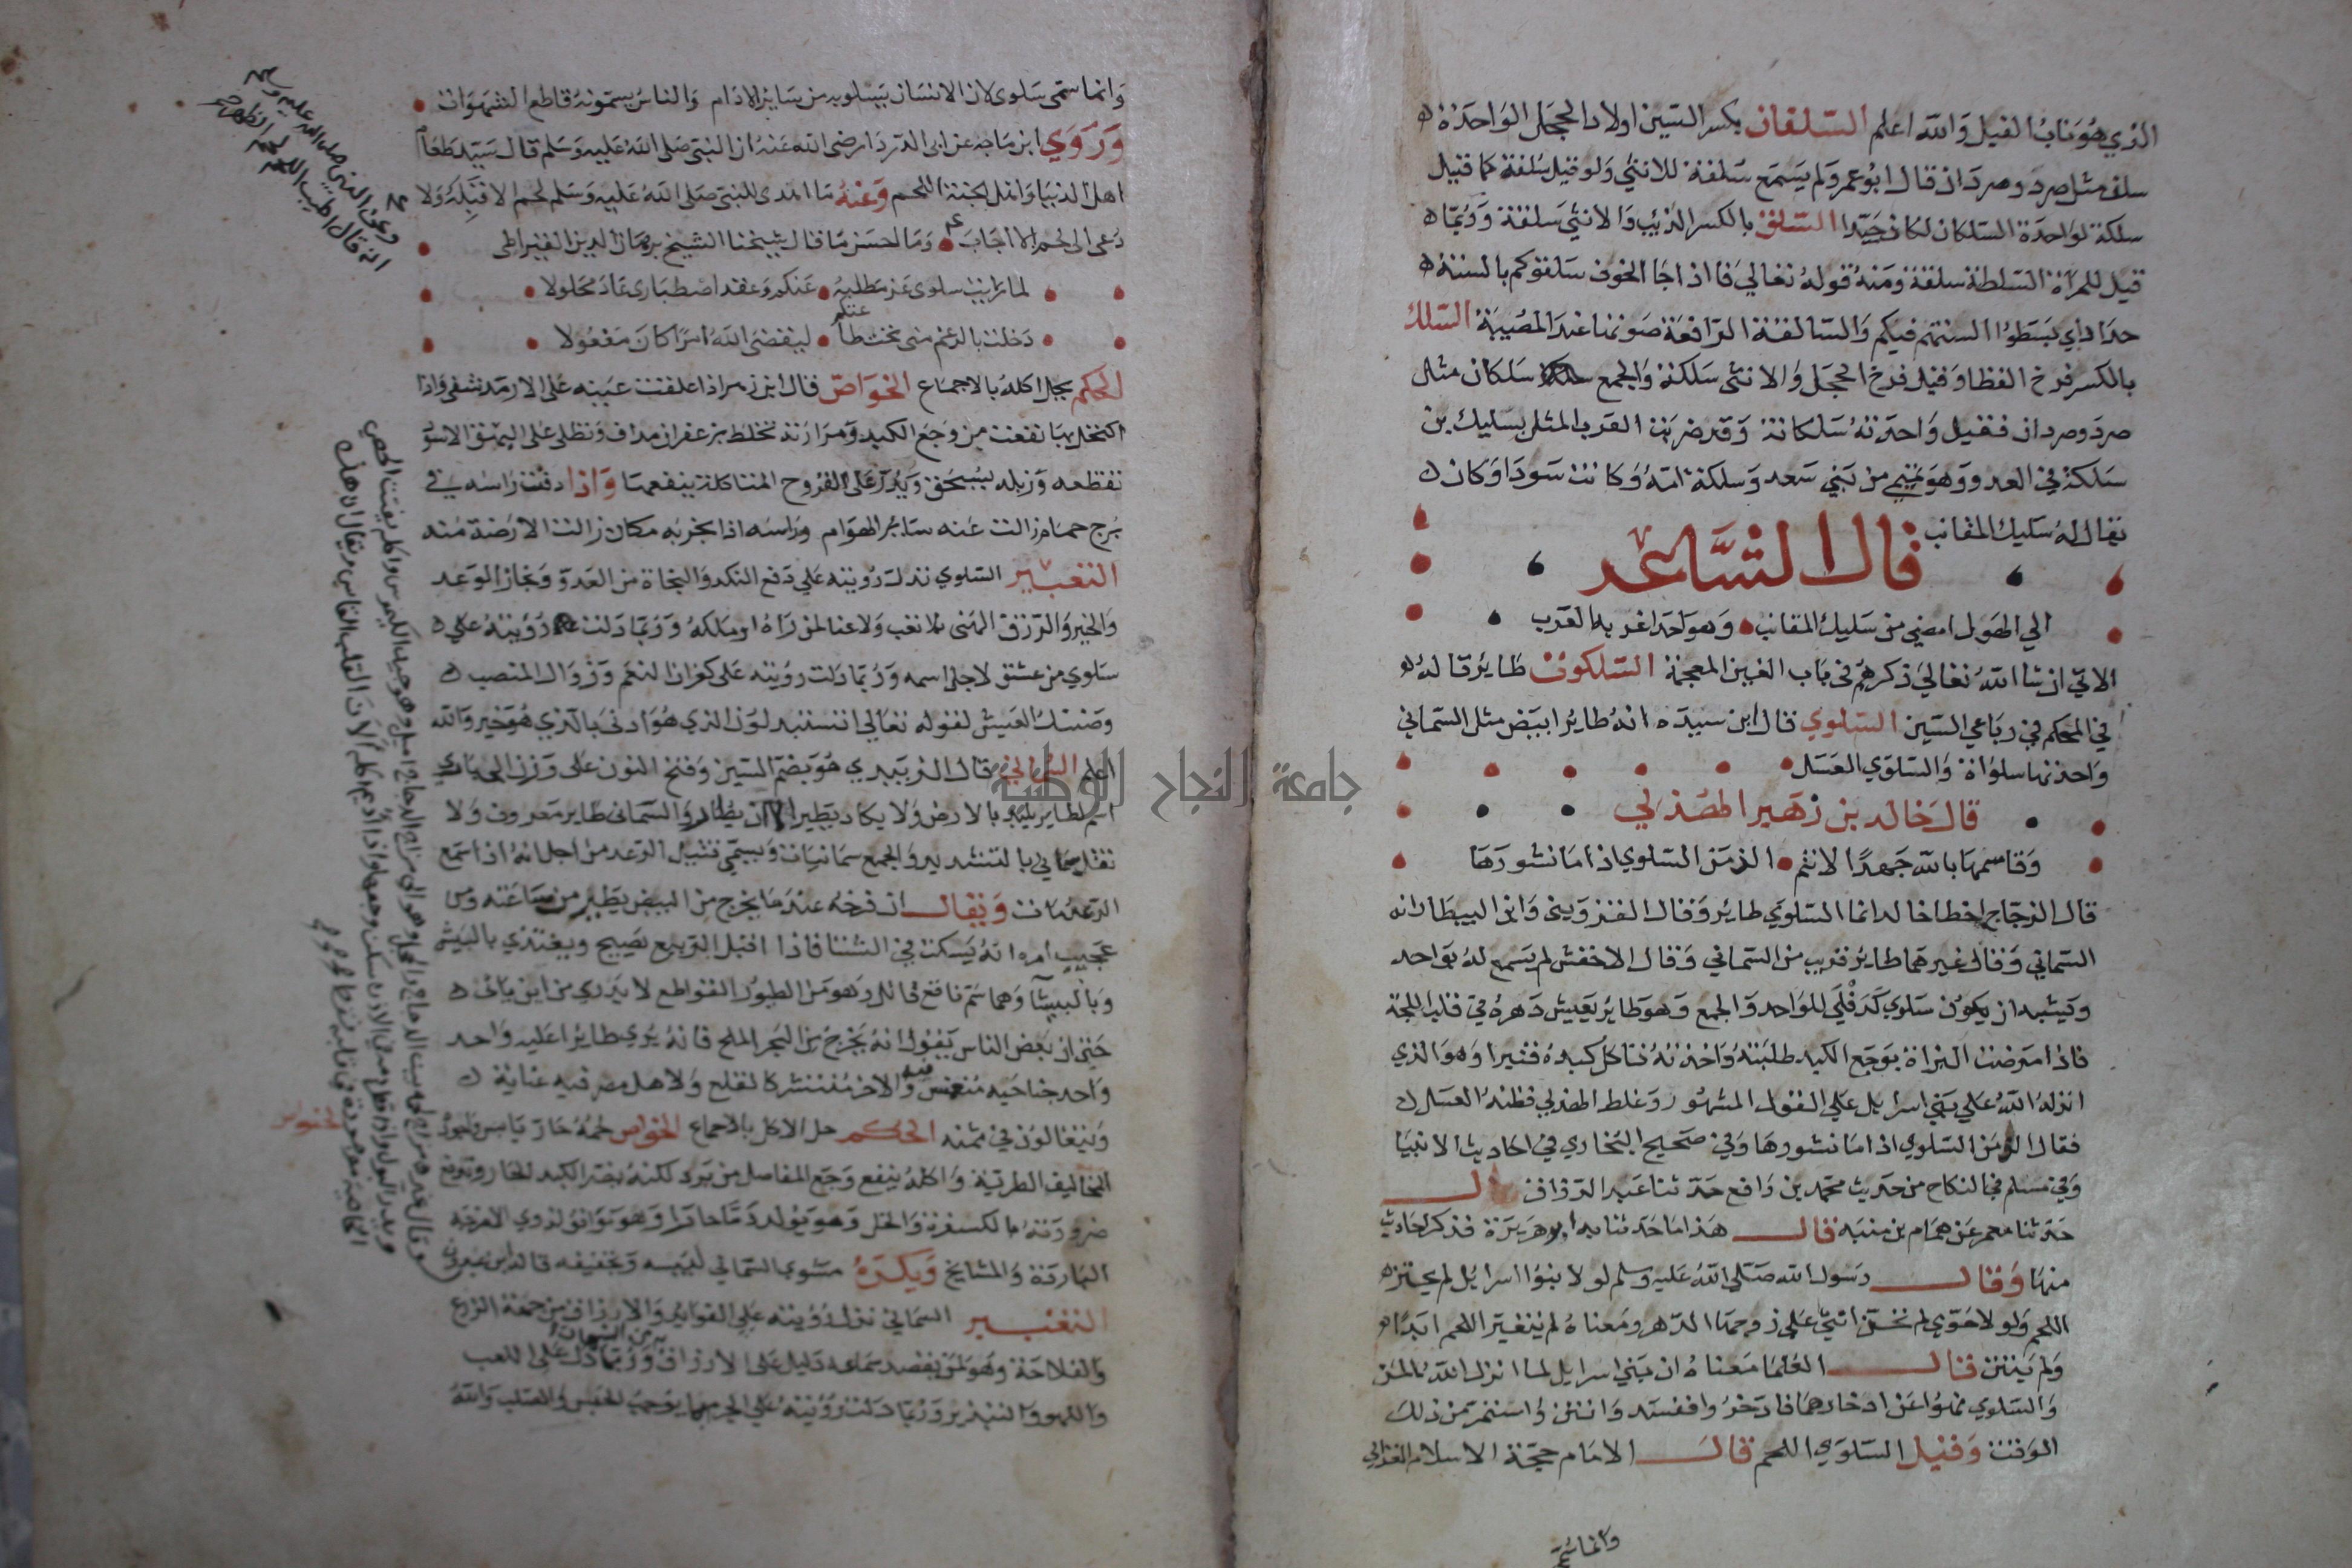 الذي هو ناب الفيل والله اعلم السلفان بكسر السين اولاد الحجل الواحدة
سلف مثل صرد وصردان قال ابو عمرو لم يسمع سلفة للانثي ولو قيل سلفة كما قيل
سلكة لواحدة السلكان لكان جيدا السلق بالكسر الذئب والانثي سلقة وربما
قيل للمراة السلطة سلقة ومنه قوله تعالي فاذا جا الخوف سلقوكم بالسنة
حداد اي بسطوا السنتهم فيكم والسالقة الرافعة صوتها عند المصيبة السلك
بالكسر فرخ القطا وقيل فرخ الحجل والانثى سلكة والجمع سلكان مثل
صرد وصردان فقيل واحدته سلكانة وقد ضربت العرب المثل بسليك بن
سلكة في العدو وهو تميمي من بني سعد وسلكة امه وكانت سودا وكان
يقال له سليك المقانب
قال الشاعر
الي الهول امضي من سليك المقانب وهو احد اغربة العرب
الاتي ان شا الله تعالي ذكرهم في باب الغين المعجمة السلكوت طاير قاله
في المحكم في رباعي السين السلوي قال ابن سيده انه طاير ابيض مثل السماني
واحدتها سلواة والسلوي العسل
قال خالد بن زهير الهذلي
وقاسمها بالله جهدا لانتم الذ من السلوي اذا ما نشورها
قال الزجاج اخطا خالد انما السلوي طاير وقال القزويني وابن البيطار انه
السماني وقال غيرهما طاير قريب من السماني وقال الاخفش لم يسمع له بواحد
ويشبه ان يكون سلوي كدفلي للواحد والجمع وهو طاير يعيش دهره في قلب اللجة
فاذا مرضت البزاة بوجع الكبد طلبته واخذته فتاكل كبده فتبرا وهو الذي
انزله الله علي بني اسرايل علي القول المشهور وغلط الهذلي فظنه العسل
فقال الذ من السلوي اذا ما نشورها وفي صحيح البخاري في احاديث الانبيا
وفي مسلم في النكاح من حديث محمد بن رافع حدثنا عبد الرزاق قال
حدثنا معمر عن همام بن منبه قال هذا ما حدثنا به ابو هريرة فذكر احاديث
منها وقال رسول الله صلي الله عليه وسلم لولا بنوا اسرايل لم يخنز
اللحم ولولا حوي لم تخن انثي علي زوجها الدهر ومعناه لم يتغير اللحم ابدا
ولم ينتن قال العلما معناه ان بني اسرايل لما انزل الله المن
والسلوي نهوا عن ادخارهما فادخروا ففسد وانتن واستمر من ذلك
الوقت وقيل السلوي اللحم قال الامام حجة الاسلام الغزالي
وانما سمي
وانما سمي سلوى لان الانسان يسلو به من ساير الادام والناس يسمونه قاطع الشهوات
وروي ابن ماجه عن ابى الدردا رضى الله عنه ان النبي صلى الله عليه وسلم قال سيد طعام
اهل الدنيا واهل الجنة اللحم وعنه ما اهدى للنبي صلى الله عليه وسلم لحم الا قبله ولا
دعى الى لحم الا اجاب وما احسن ما قال شيخنا الشيخ برهان الدين القيراطى
لما رايت سلوى عز مطلبه عنكم وعقد اصطبارى عاد محلولا
دخلت بالرغم مني تحت طاعتكم ليقضى الله امرا كان مفعولا
الحكم يحل اكله بالاجماع الخواص قال ابن زهر اذا علقت عينه على الارمد شفى واذا
اكتحل بها نفعت من وجع الكبد ومرارته تخلط بزعفران مداف وتطلى على البهق الاسود
تقطعه وزبله يسحق ويذر على القروح المتاكلة ينفعها واذا دفنت راسه في
برج حمام زالت عنه ساير الهوام وراسه اذا بخر به مكان زالت الارضة منه
التعبير السلوي تدل رويته علي دفع النكد والنجاة من العدو ونجاز الوعد
والخير والرزق الهنى بلا تعب ولا عنا لمن راه او ملكه وربما دلت رؤيته علي
سلوي من عشق لاجل اسمه وربما دلت رويته على كفران النعم وزوال المنصب
وضنك العيش لقوله تعالي اتستبدلون الذي هو ادنى بالذي هو خير والله
اعلم السماني قال الزبيدي هو بضم السين وفتح النون على وزن الحبارى
اسم لطاير يلبد بالارض ولا يكاد يطير الا ان يطار والسمانى طاير معروف ولا
تقل سماني بالتشديد والجمع سمانيات ويسمي قتيل الرعد من اجل انه اذا سمع
الرعد مات ويقال ان فرخه عند ما يخرج من البيض يطير من ساعته ومن
عجيب امره انه يسكت في الشتا فاذا اقبل الربيع يصيح ويغتذي بالبيش
وبالبيشا وهما سم ناقع قاتل وهو من الطيور القواطع لا يدري من اين ياتى
حتى ان بعض الناس يقول انه يخرج من البحر الملح فانه يري طايرا عليه واحد
واحد جناحيه منغمس فيه والاخر منتشر كالقلع ولاهل مصر فيه عناية
ويتغالون في ثمنه الحكم حل الاكل بالاجماع الخواص لحمه حار يابس واجود
المخاليف الطرية واكله ينفع وجع المفاصل من برد لكنه يضر الكبد الحار وتدفع
ضرورته بالكسفرة والخل وهو يولد دما حارا وهو يوافق لذوي الامزجه
الباردة والمشايخ ويكره مشوي السماني ليبسه وتجفيفه
التعبير السماني تدل رؤيته علي الفوايد والارزاق من جهة الزرع
والفلاحة وهو لمن يقصد سماعه دليل على الارزاق وربما دل على اللعب
واللهو والتبذير وربما دلت رؤيته علي الجرم بما يوجب الحبس والصلب والله
وعن النبي صلى الله عليه وسلم
انه قال اطيب اللحم لحم الظهر
الخواص
جامعة النجاح الوطنية